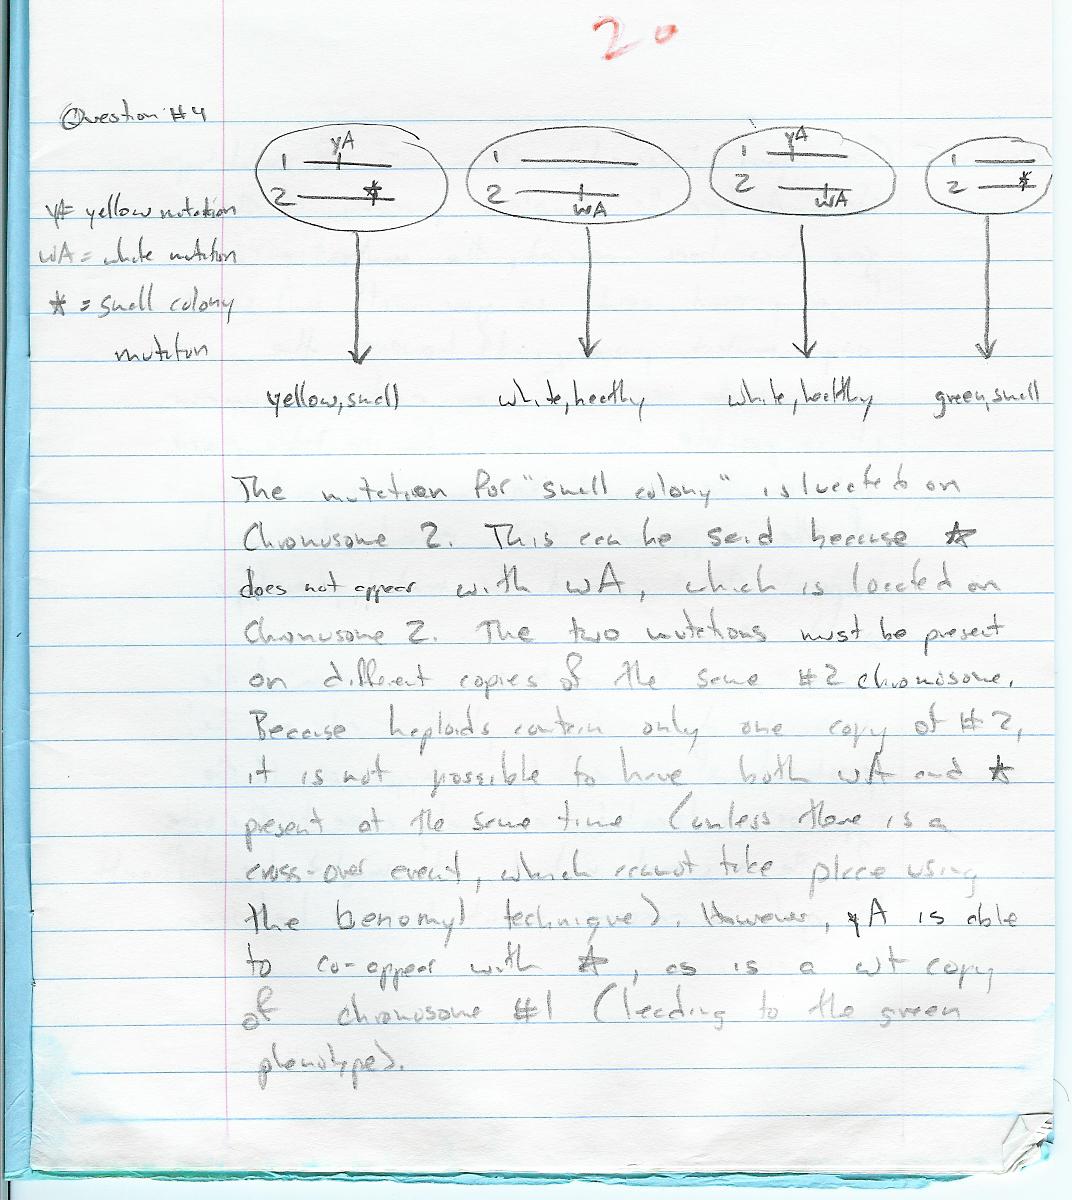 20
Question #4
yA
1
2 *
1
2
wA
yA
1
2
wA
1
2 *
yA = yellow mutation
wA = white mutation
* = small colony
mutation
yellow, small
white, healthy
white, healthy
green, small
The mutation for "small colony" is located on
Chromosome 2. This can be said because *
does not appear with wA, which is located on
Chromosome 2. The two mutations must be present
on different copies of the same #2 chromosome.
Because haploids contain only one copy of #2,
it is not possible to have both wA and *
present at the same time (unless there is a
cross-over event, which cannot take place using
the benomyl technique). However, yA is able
to co-appear with *, as is a wt copy
of chromosome #1 (leading to the green
phenotype).